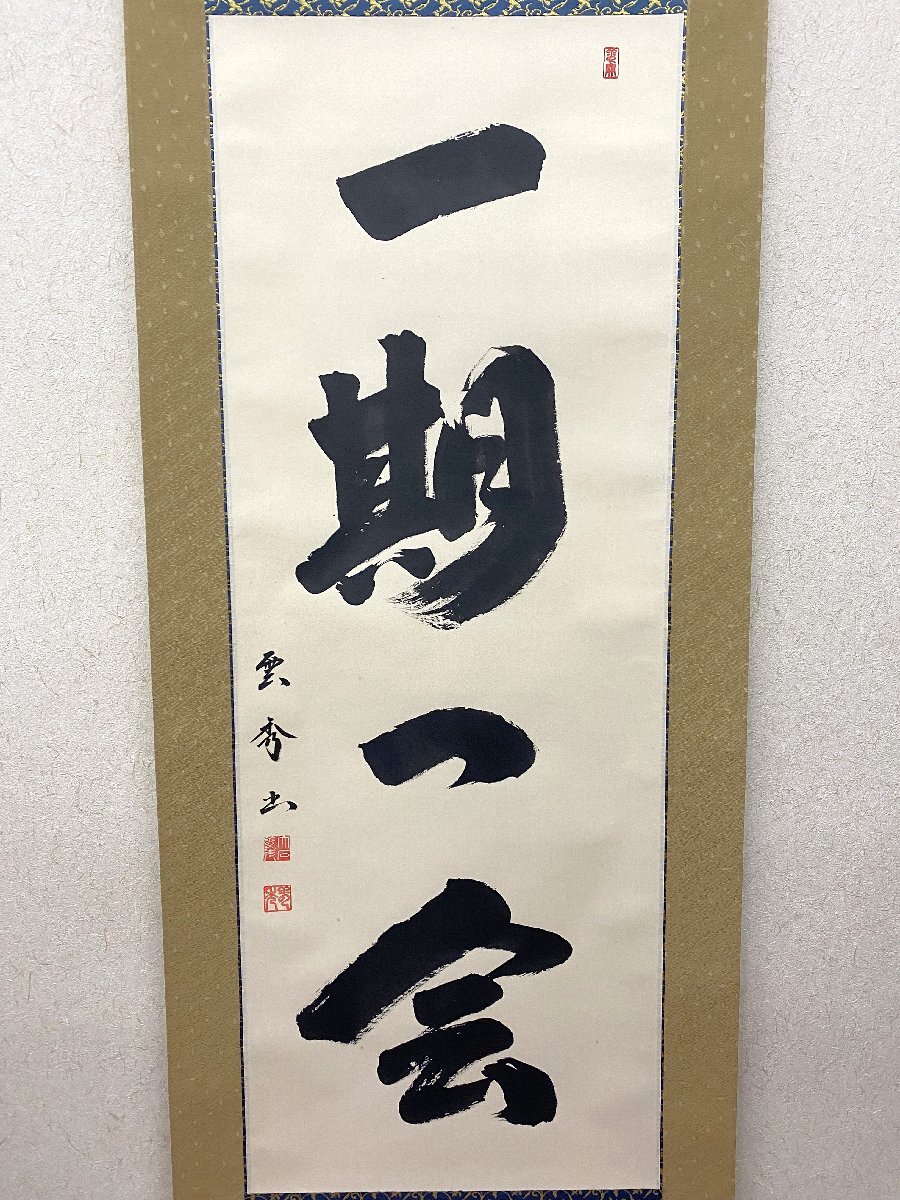 一期一会
雲秀书